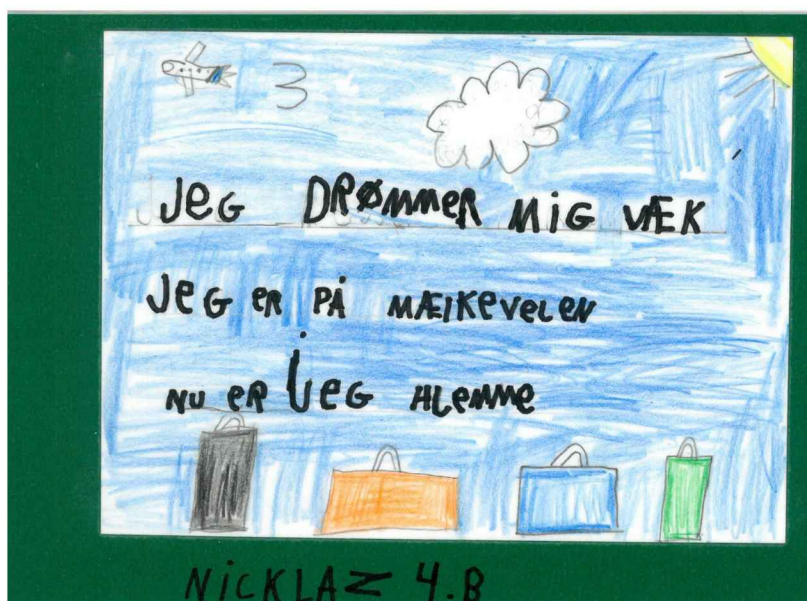 3
JEG DRØMMER MIG VÆK
JEG ER PÅ MÆIKEVELEN
NU ER JEG HLEMME
NICKLAZ 4.B